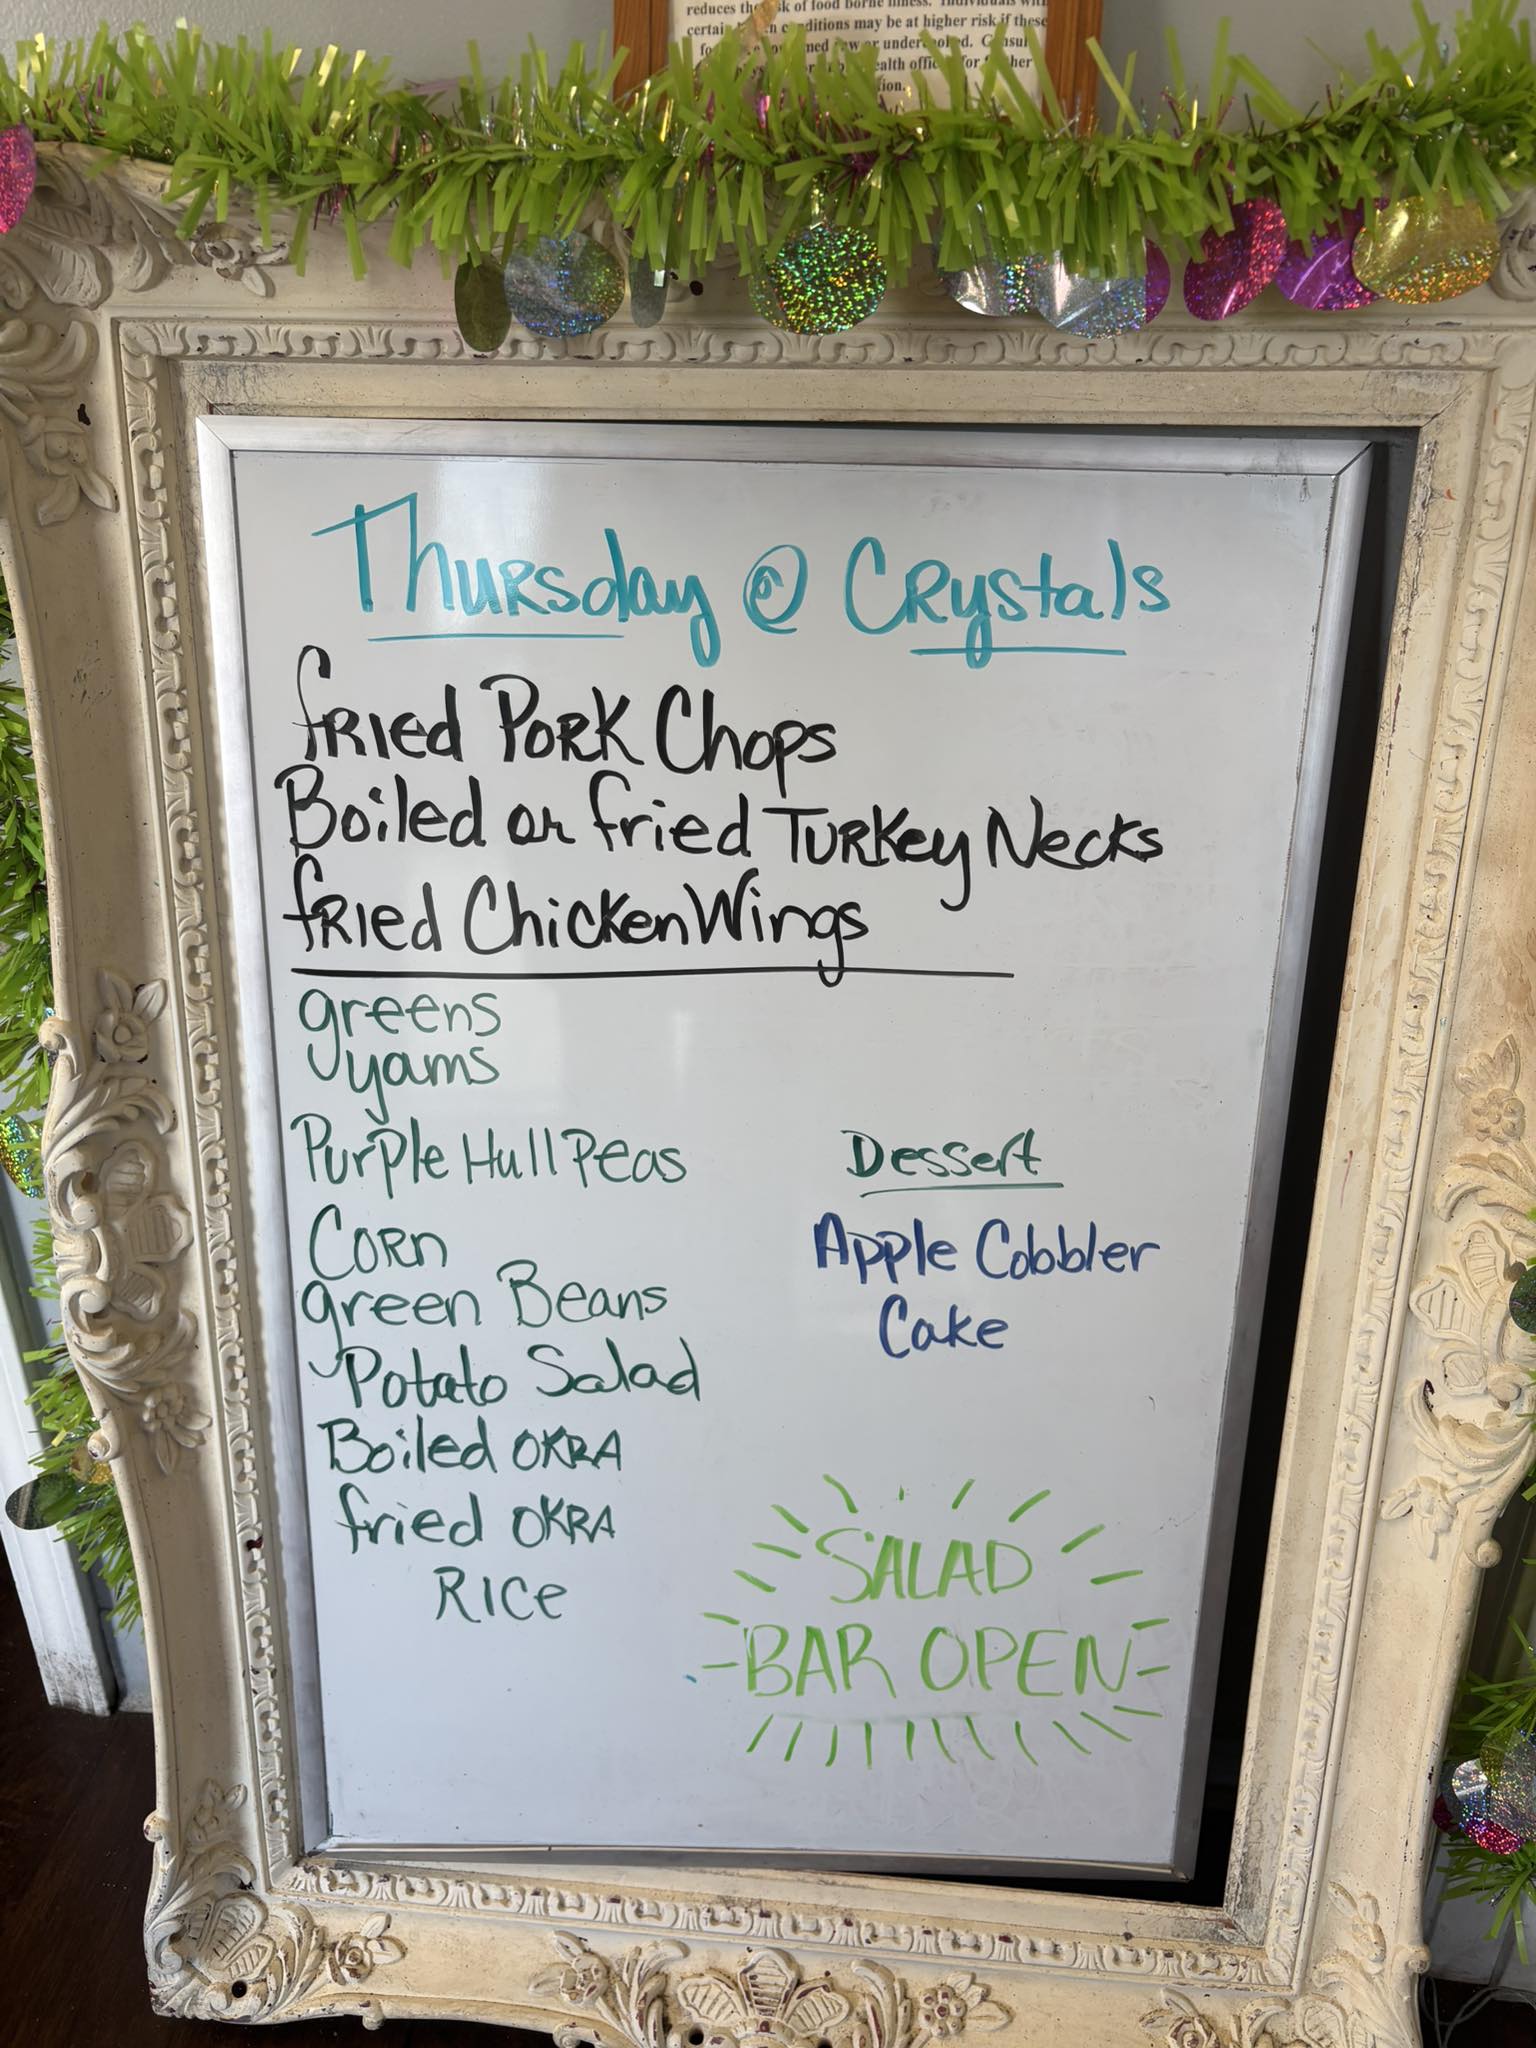 reduces the risk of food borne illness. Individuals with
certain conditions may be at higher risk if these
raw or undercooked. Consult
for
Thursday @ Crystals
fried Pork Chops
Boiled or fried Turkey Necks
fried Chicken Wings
greens
yams
Purple Hull Peas
Corn
green Beans
Potato Salad
Boiled OKRA
fried OKRA
Rice
Dessert
Apple Cobbler
Cake
SALAD
BAR OPEN